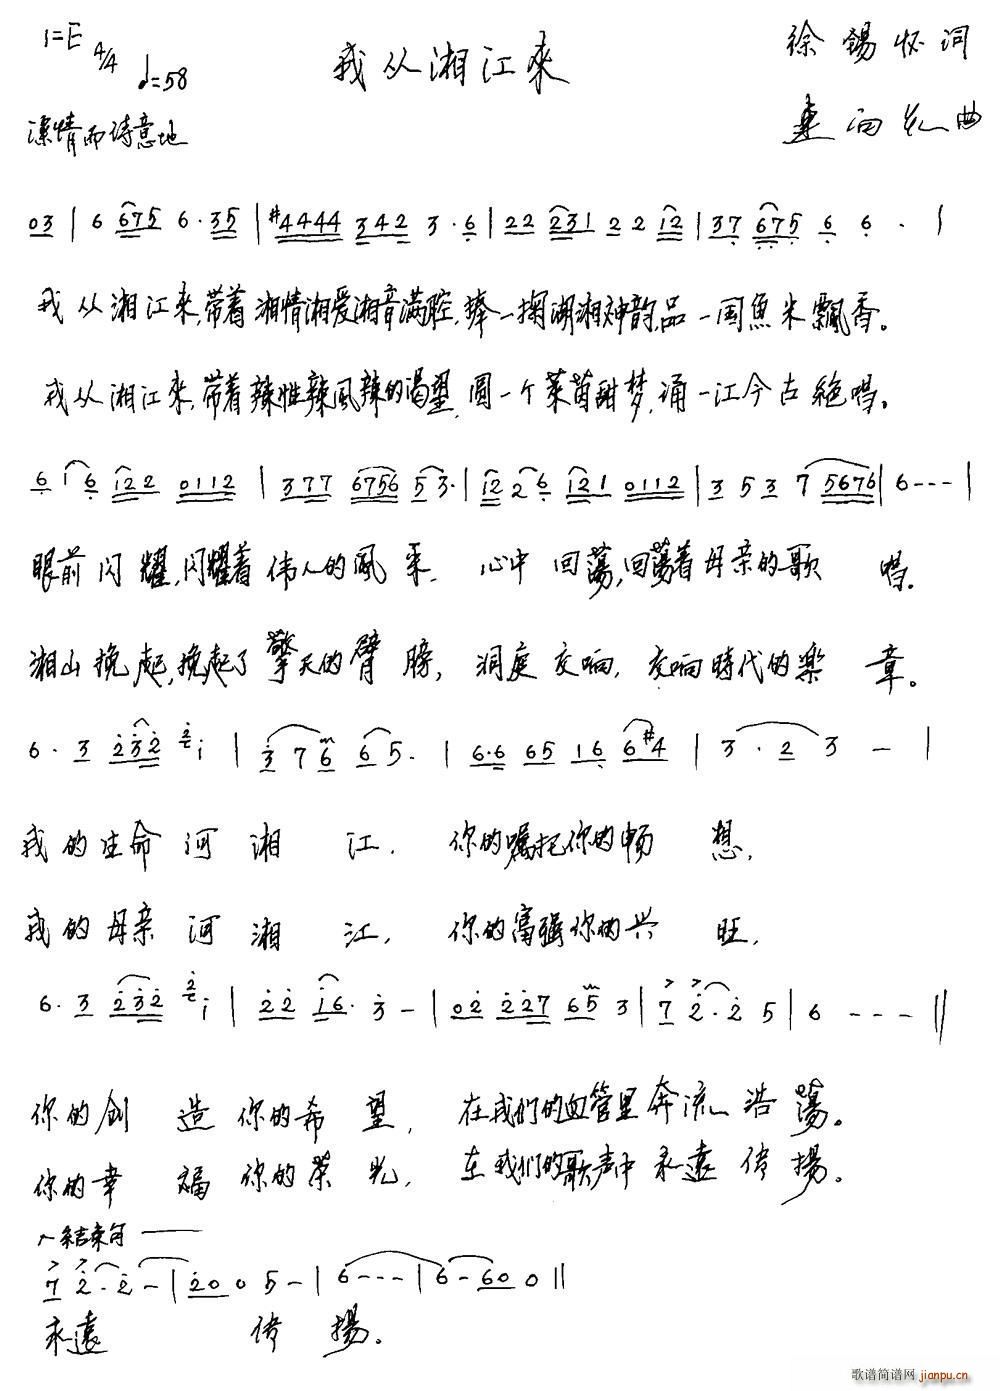 1=E 4/4 ♩=58
我从湘江來
徐錫怀词
東向红曲
深情而诗意地
03 | 6 675 6·35 | #4444 342 3·6 | 22 231 22 12 | 37 675 6 6· |
我从湘江來,带着湘情湘爱湘音满腔,捧一掬湖湘神韵,品一国魚米飄香。
我从湘江來,带着辣性辣风辣的渴望,圆一个莱茵甜梦,诵一江今古絶唱。
6 1 6 122 0112 | 377 6756 53· | 12 26 121 0112 | 3 53 7 5676 | 6--- |
眼前闪耀,闪耀着伟人的風采.心中回蕩,回蕩着母亲的歌唱.
湘山挽起,挽起了擎天的臂膀,洞庭交响,交响時代的樂章。
6·3 232 2i | 3 7 6 65· | 6·6 65 16 6#4 | 3·2 3 - |
我的生命河湘江.你的嘱托你的畅想,
我的母亲河湘江,你的富强你的兴旺,
6·3 232 2i | 22 i6· 3 - | 02 227 65 3 | 7 2·2 5 | 6 --- ||
你的创造你的希望,在我们的血管里奔流浩蕩。
你的幸福你的荣光,在我们的歌声中永遠传揚。
结束句
7 2·2 - | 20 0 5 - | 6--- | 6-60 0 ||
永遠传揚。
歌谱简谱网 jianpu.cn